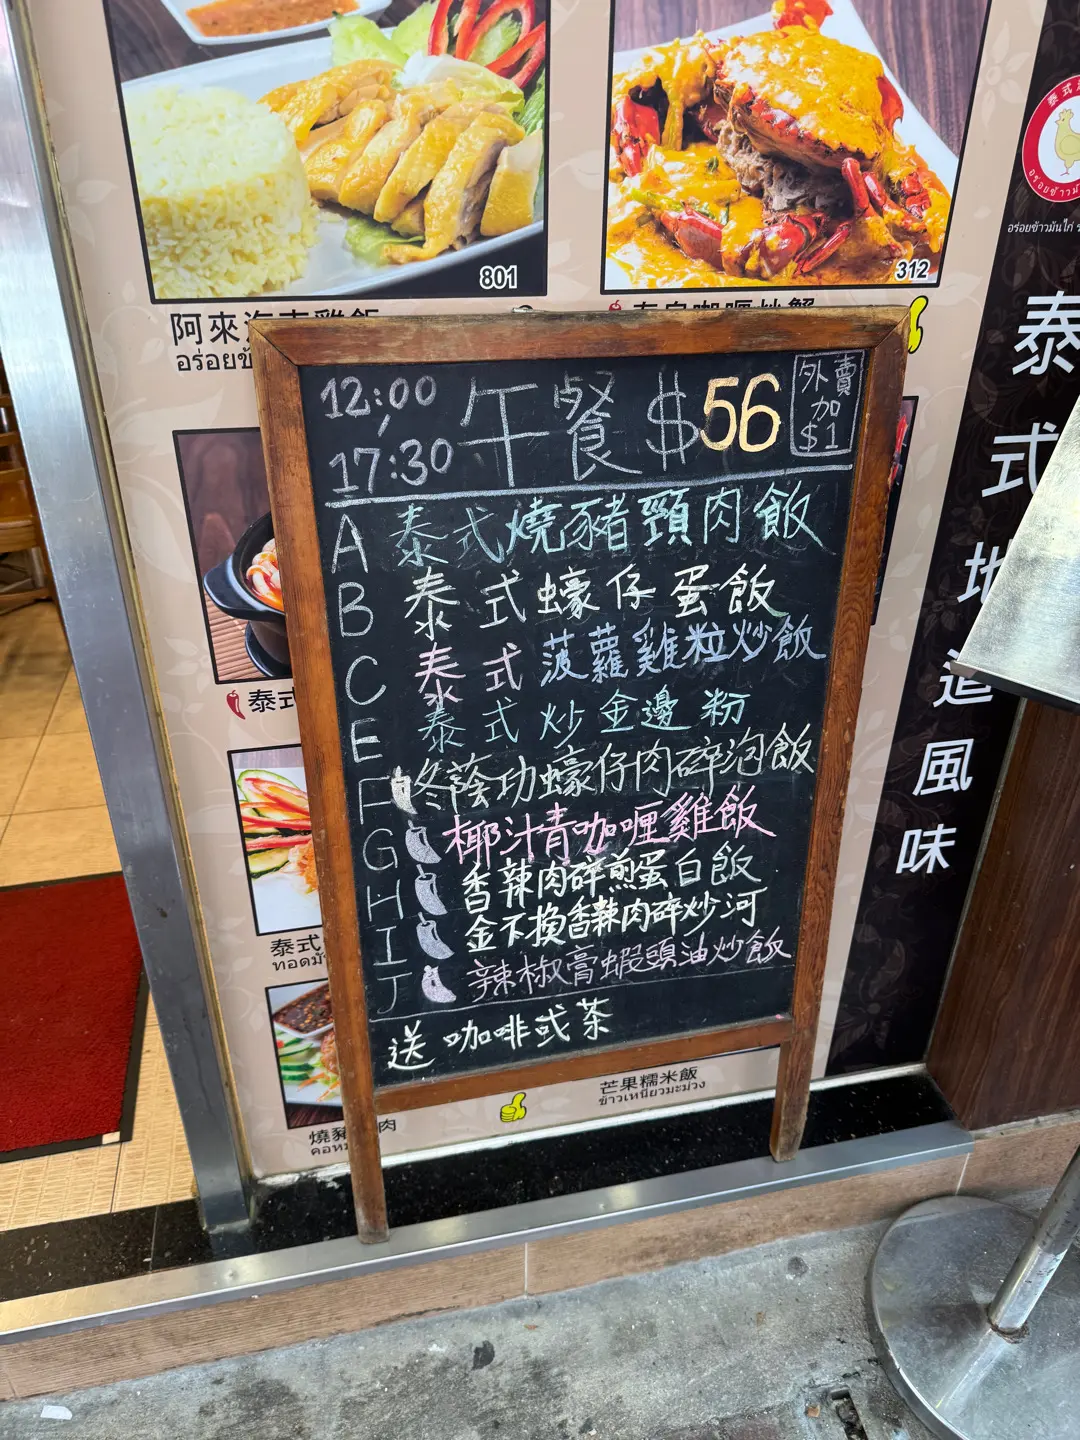 801
312
阿來海南雞飯
泰式
อร่อยข้าวมันไก่
泰式地道風味
12:00
17:30
午餐 $56
外賣
加
$1
A 泰式燒豬頸肉飯
B 泰式蠔仔蛋飯
C 泰式菠蘿雞粒炒飯
E 泰式炒金邊粉
F 冬蔭功蠔仔肉碎泡飯
G 椰汁青咖喱雞飯
H 香辣肉碎煎蛋白飯
I 金不換香辣肉碎炒河
J 辣椒膏蝦頭油炒飯
送咖啡或茶
泰式
泰式
ทอดมั
芒果糯米飯
ข้าวเหนียวมะม่วง
燒豬 肉
คอหม